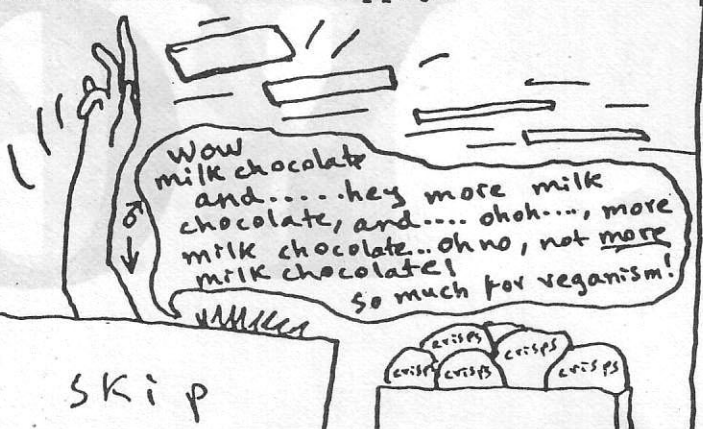 Wow
milk chocolate
and.....hey more milk
chocolate, and.... ohoh...., more
milk chocolate...oh no, not more
milk chocolate!
so much for veganism!
crisps
crisps
crisps
crisps
crisps
skip